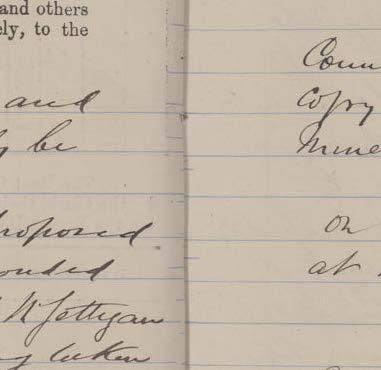 and others
ely, to the
and
be
proposed
onded
taken
Coun
Copy
on
at